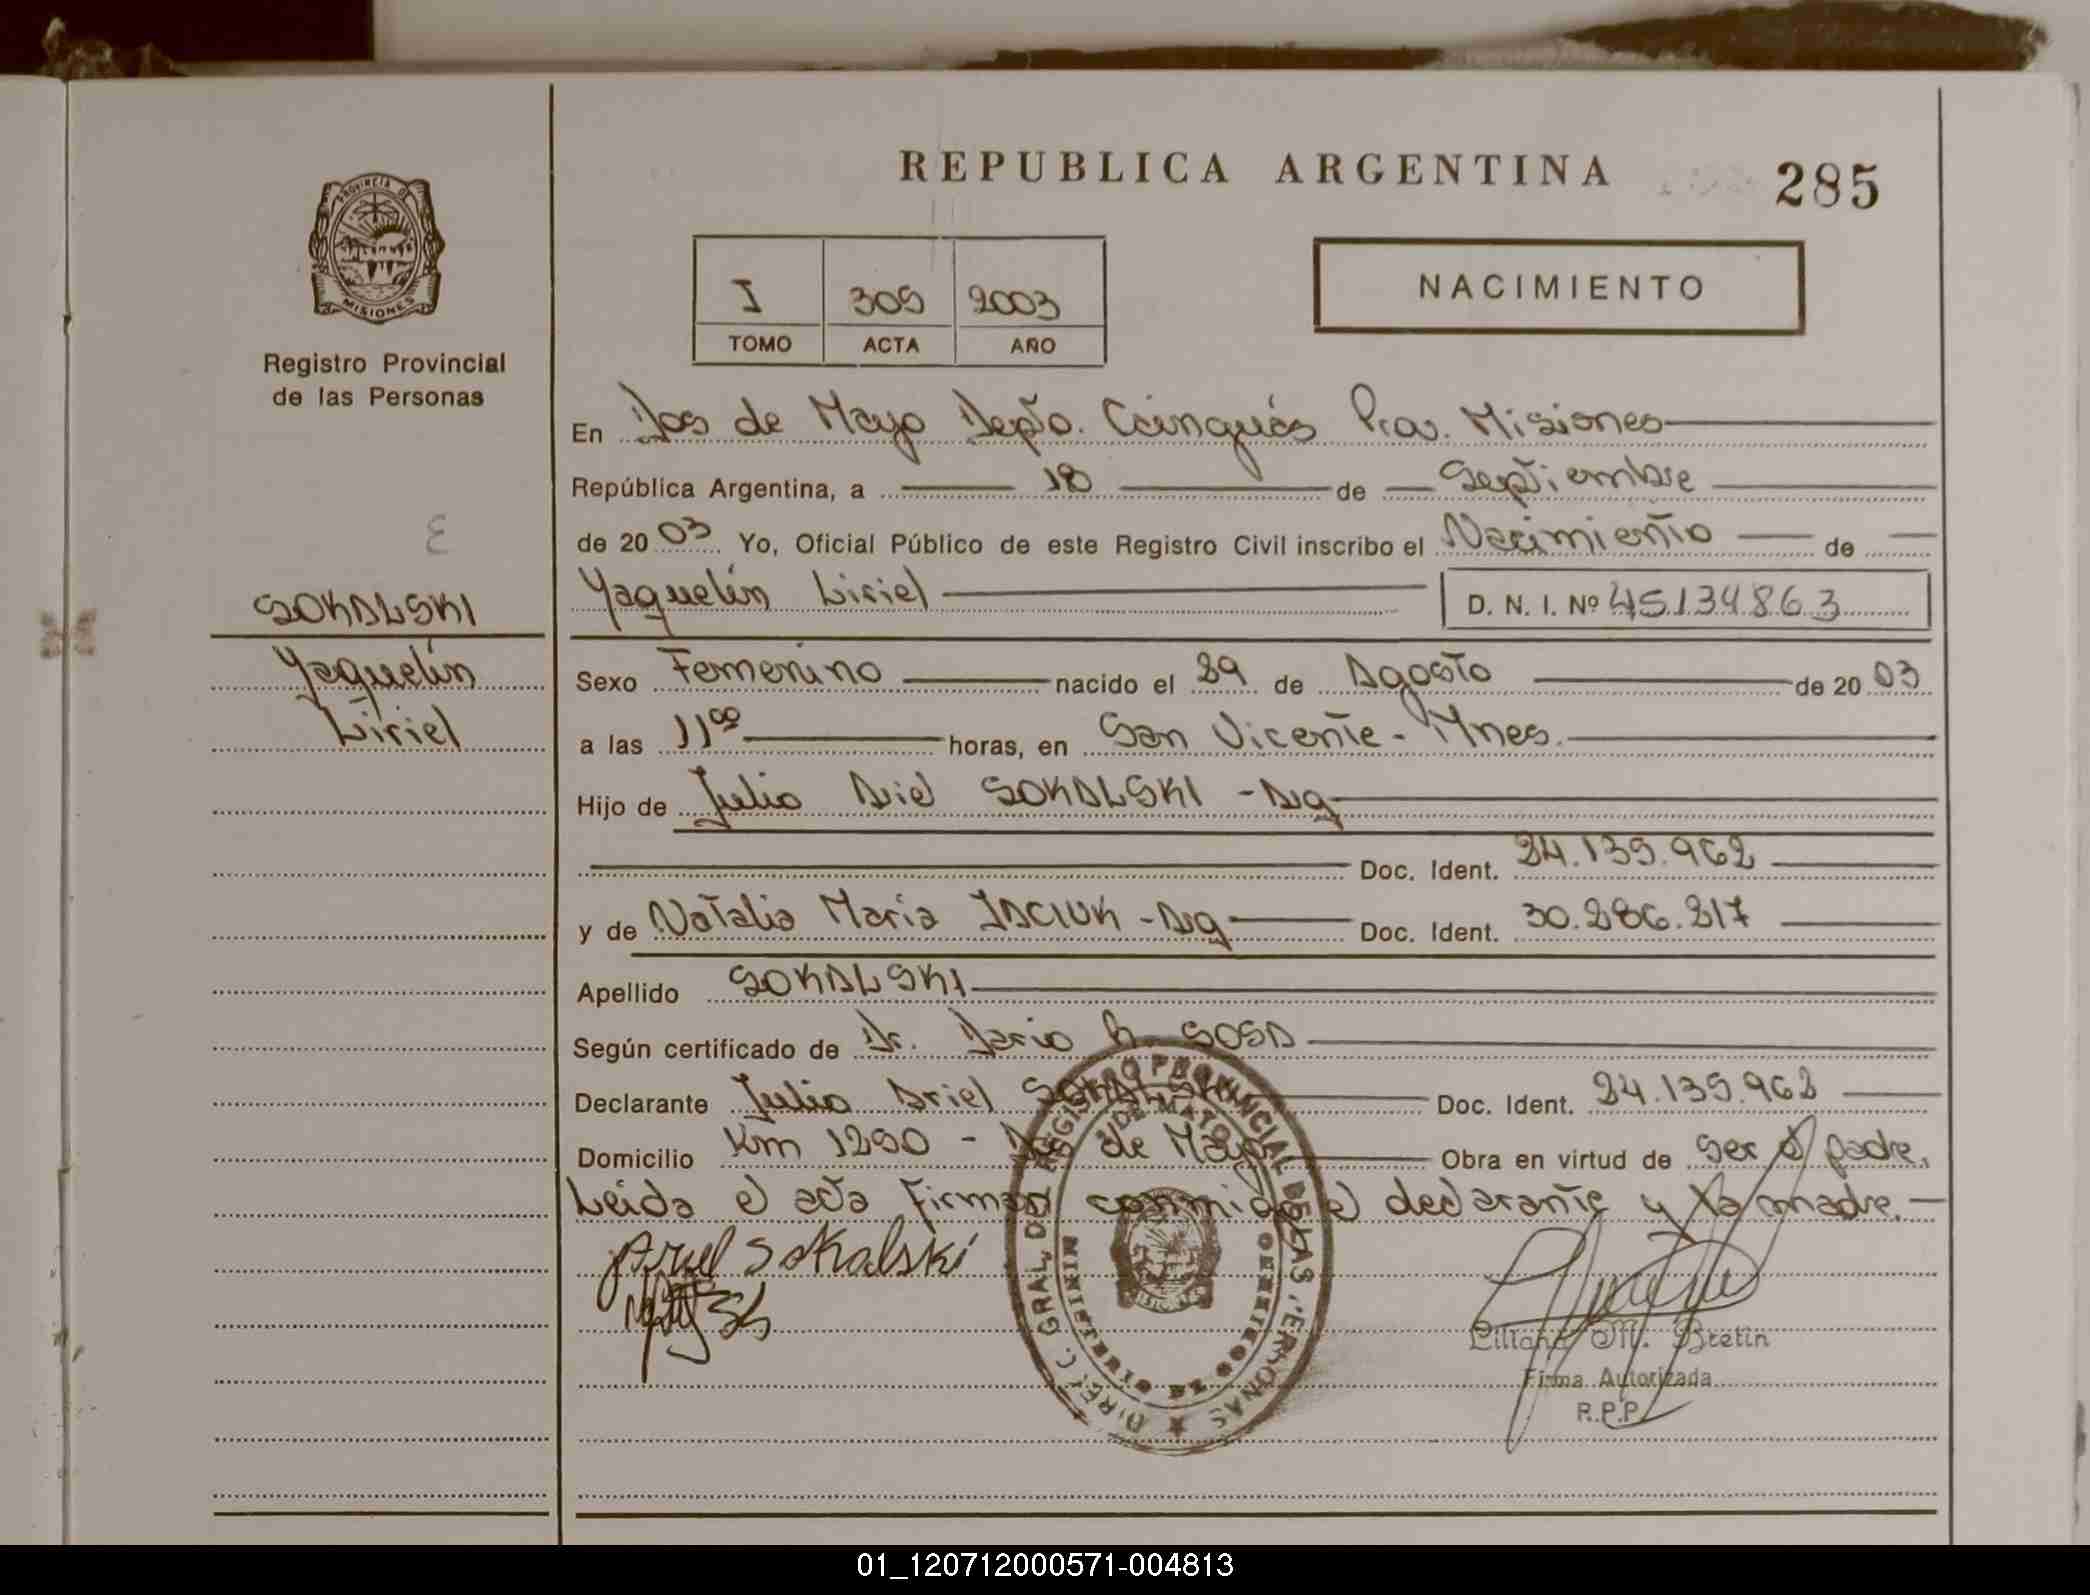 REPUBLICA ARGENTINA
285
PROVINCIA DE
MISIONES
Registro Provincial
de las Personas
I 305 2003
TOMO ACTA AÑO
NACIMIENTO
En Dos de Mayo Depto. Cainguás Prov. Misiones
República Argentina, a 18 de Septiembre
de 2003 Yo, Oficial Público de este Registro Civil inscribo el Nacimiento de
Yaquelin Liriel D. N. I. Nº 45134863
SOKALSKI
Yaquelin
Liriel
Sexo Femenino nacido el 29 de Agosto de 2003
a las 11⁰⁰ horas, en San Vicente - Mnes.
Hijo de Julio Ariel SOKALSKI - Arg
Doc. Ident. 24.135.962
y de Natalia Maria IACIUK - Arg Doc. Ident. 30.286.217
Apellido SOKALSKI
Según certificado de Dr. Dario R. SOSA
Declarante Julio Ariel SOKALSKI Doc. Ident. 24.135.962
Domicilio Km 1290 - Dos de Mayo Obra en virtud de ser el padre.
Leida el acta firman conmigo el declarante y la madre.
Ariel Sokalski
DIREC. GRAL. DEL REGISTRO PROVINCIAL DE LAS PERSONAS
MINISTERIO DE GOBIERNO
Liliana M. Bretin
Firma Autorizada
R.P.P.
01_120712000571-004813